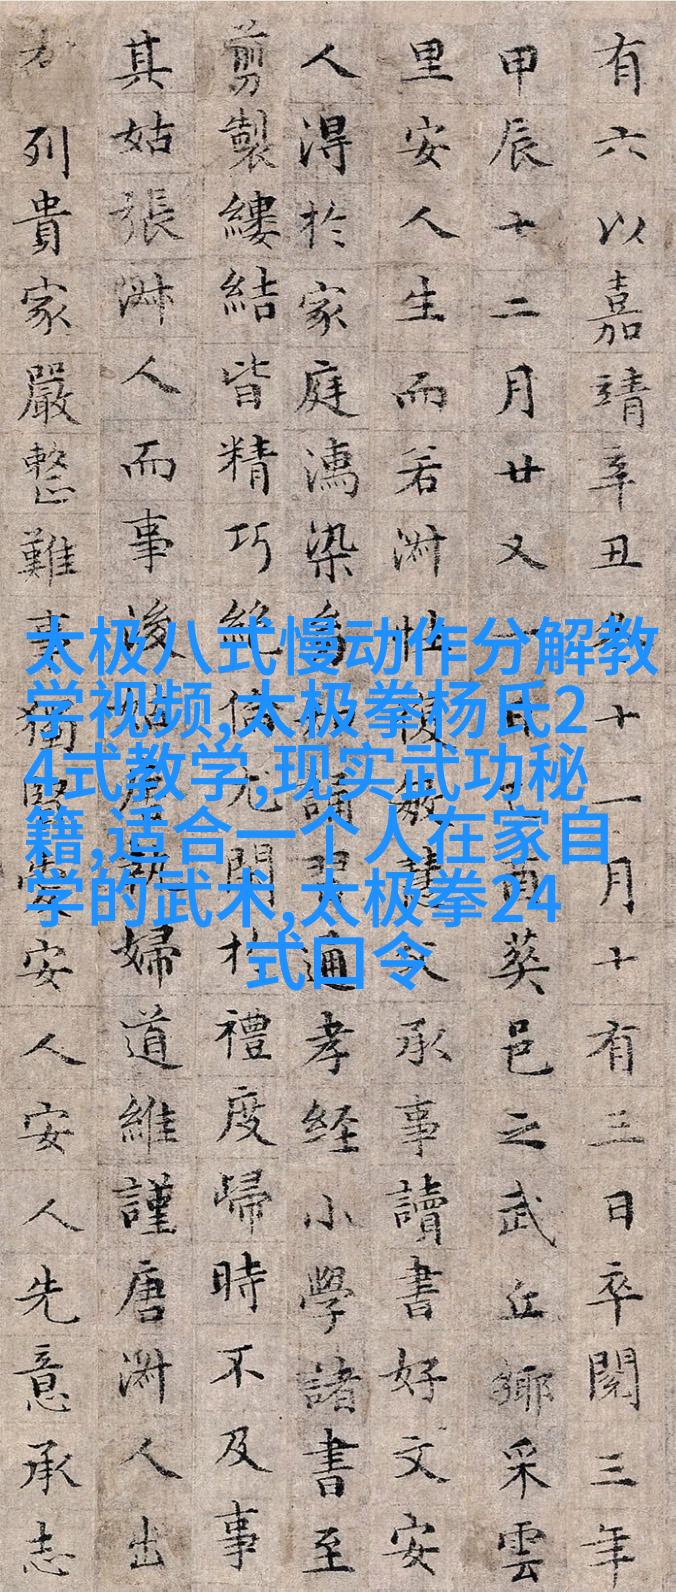 有六以嘉靖辛丑十一月十有三日卒閱三年
甲辰十二月廿又一葵邑之武丘鄉采雲
里安人生而若淑性復敏慧父承事讀書好文安
人淂於家庭濡染為誦習通孝經小學諸書至
剪製縷結皆精巧絕倫尤閑於禮度歸時不及事
其姑張淑人而事後姑執婦道維謹唐淑人出
列貴家嚴整難事獨賢安人安人先意承志
太极八式慢动作分解教
学视频,太极拳杨氏2
4式教学,现实武功秘
籍,适合一个人在家自
学的武术,太极拳24
式口令